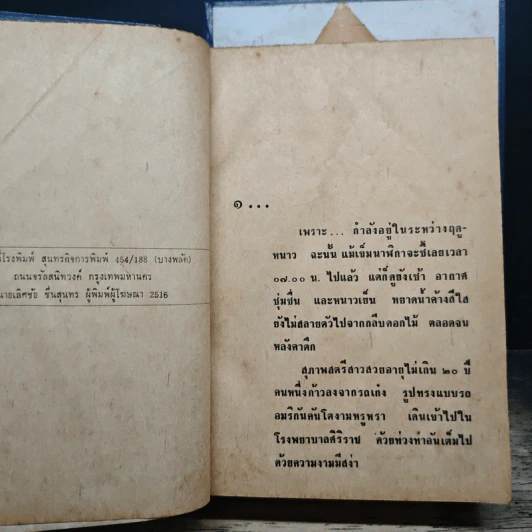 โรงพิมพ์ สุนทรกิจการพิมพ์ 454/188 (บางพลัด)
ถนนจรัลสนิทวงศ์ กรุงเทพมหานคร
นายเลิศชัย ชื่นสุนทร ผู้พิมพ์ผู้โฆษณา 2516
๑ ...
เพราะ... กำลังอยู่ในระหว่างฤดู-
หนาว ฉะนั้น แม้เข็มนาฬิกาจะชี้เลยเวลา
๐๗.๐๐ น. ไปแล้ว แต่ก็ดูยังเช้า อากาศ
ชุ่มชื่น และหนาวเย็น หยาดน้ำค้างสีใส
ยังไม่สลายตัวไปจากกลีบดอกไม้ ตลอดจน
หลังคาตึก
สุภาพสตรีสาวสวยอายุไม่เกิน ๒๐ ปี
คนหนึ่งก้าวลงจากรถเก๋ง รูปทรงแบบรถ
อมริกันคันโตงามหรูหรา เดินเข้าไปใน
โรงพยาบาลศิริราช ด้วยท่วงท่าอันเต็มไป
ด้วยความงามมีสง่า